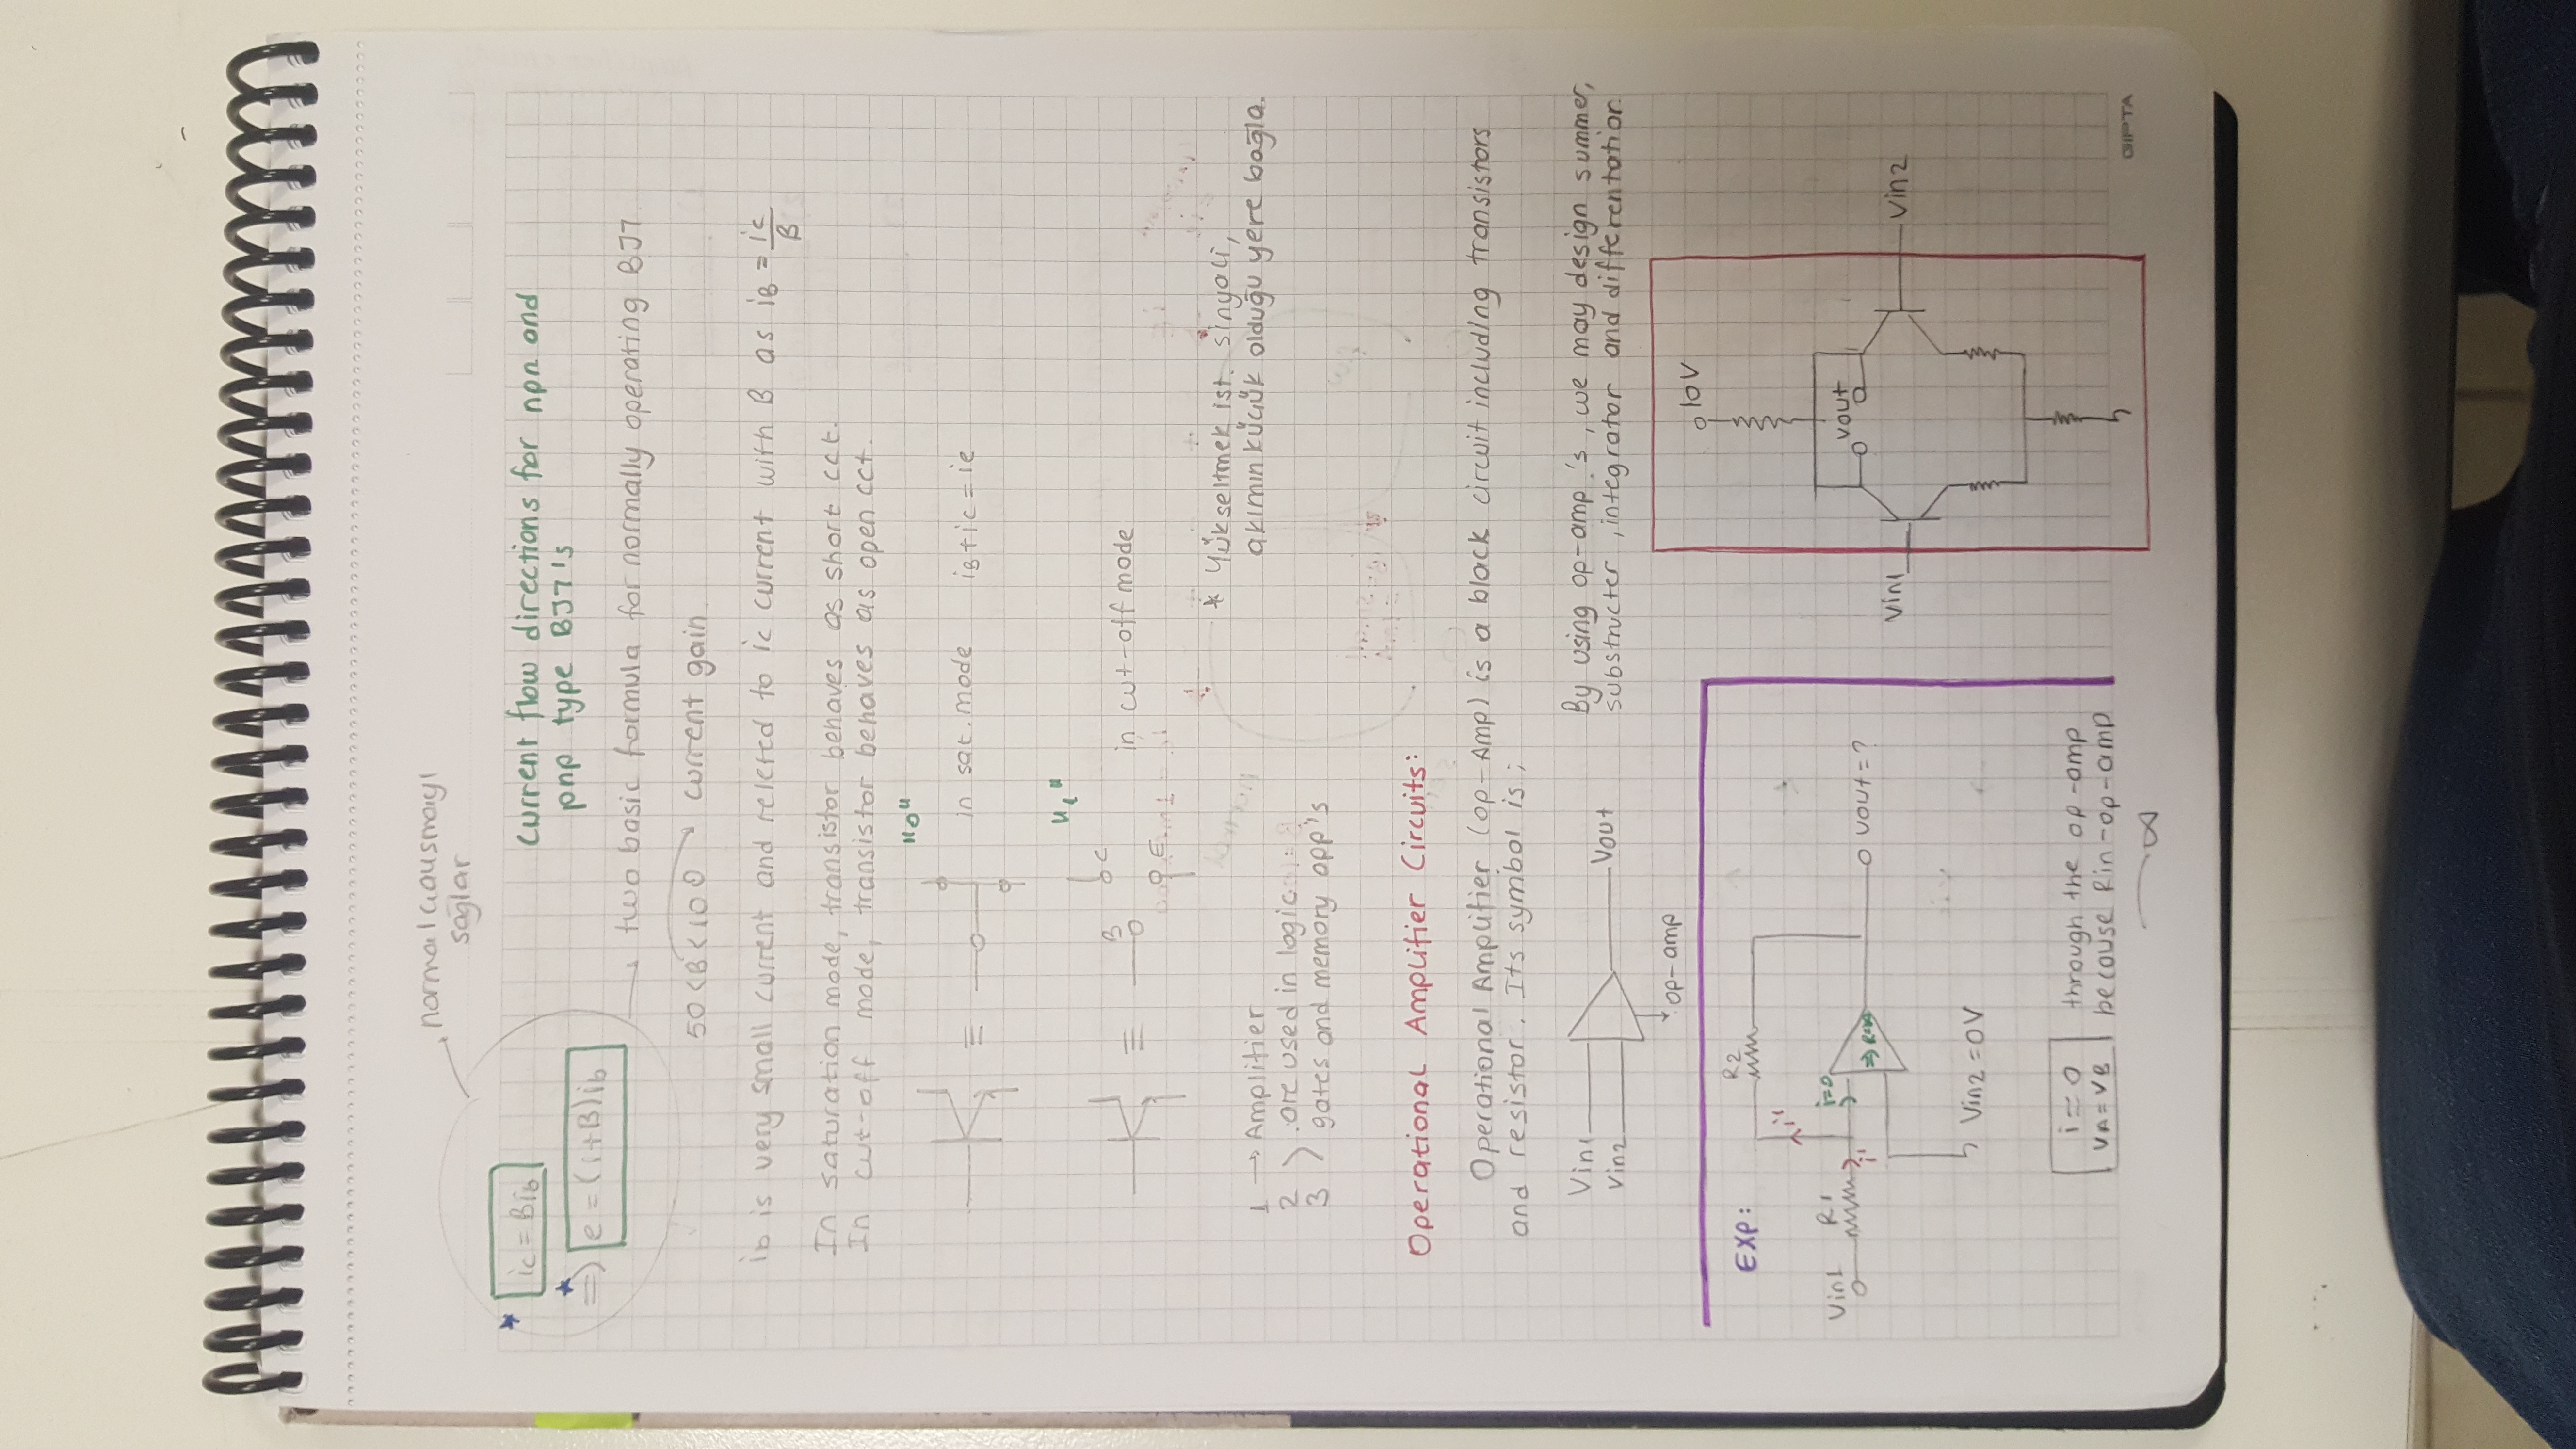 normal çalışmayı
sağlar
* ic = Bib
* => e = (i+B)ib
current flow directions for npn and
pnp type BJT's
two basic formula for normally operating BJT
50<B<100 → current gain
ib is very small current and releted to ic current with B as iB = ic/B
In saturation mode, transistor behaves as short cct.
In cut-off mode, transistor behaves as open cct.
"0"
≡ in sat. mode iB+ic=ie
"1"
≡ B C E in cut-off mode
* Yükseltmek ist. sinyali,
akımın küçük olduğu yere bağla.
1 → Amplifier
2 } are used in logic
3 } gates and memory app's
Operational Amplifier Circuits:
Operational Amplifier (op-Amp) is a black circuit including transistors
and resistor. Its symbol is;
Vin1
Vin2
Vout
op-amp
By using op-amp's, we may design summer,
substructer, integrator and differentatior.
EXP:
R2
i'
Vin1 R1 i' i=0
Vout=?
Vin2=0V
i≈0 through the op-amp
VA=VB becouse Rin-op-amp
∞
10V
Vout
Vin1
Vin2
GIPTA